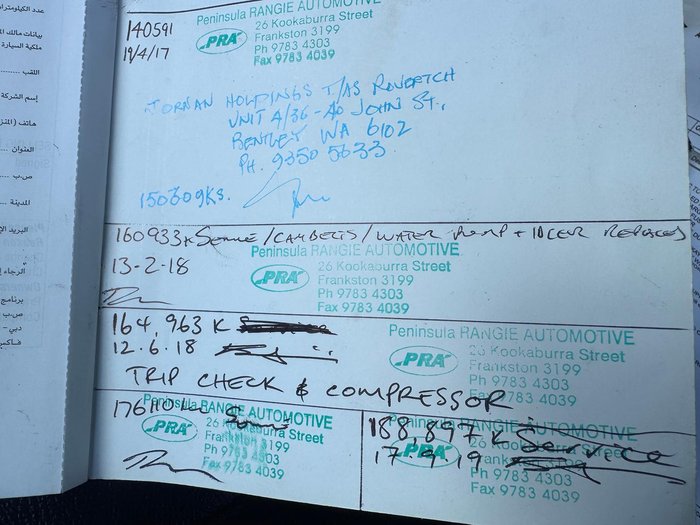 عدد الكيلومترا
بيانات مالك ال
ملكية السيارة
اللقب ........
إسم الشركة
هاتف (المنز
العنوان ....
ص.ب ....
المدينة ....
البريد الإ
الرجاء إ
برنامج
ص.ب
دبي -
فاكس
140591
19/4/17
Peninsula RANGIE AUTOMOTIVE
PRA
26 Kookaburra Street
Frankston 3199
Ph 9783 4303
Fax 9783 4039
JORNAN HOLDINGS T/AS ROVERTCH
UNIT 4/36-40 JOHN ST.,
BENTLEY WA 6102
PH. 9350 5633
150309KS.
160933K SERVICE/CAMBELTS/WATER PUMP + IDLER REPLACED
13-2-18
Peninsula RANGIE AUTOMOTIVE
PRA
26 Kookaburra Street
Frankston 3199
Ph 9783 4303
Fax 9783 4039
164,963 K
12.6.18
TRIP CHECK & COMPRESSOR
Peninsula RANGIE AUTOMOTIVE
PRA
26 Kookaburra Street
Frankston 3199
Ph 9783 4303
Fax 9783 4039
176110
Peninsula RANGIE AUTOMOTIVE
PRA
26 Kookaburra Street
Frankston 3199
Ph 9783 4303
Fax 9783 4039
188,897 K Service
17.9.19
Peninsula RANGIE AUTOMOTIVE
PRA
26 Kookaburra Street
Frankston 3199
Ph 9783 4303
Fax 9783 4039